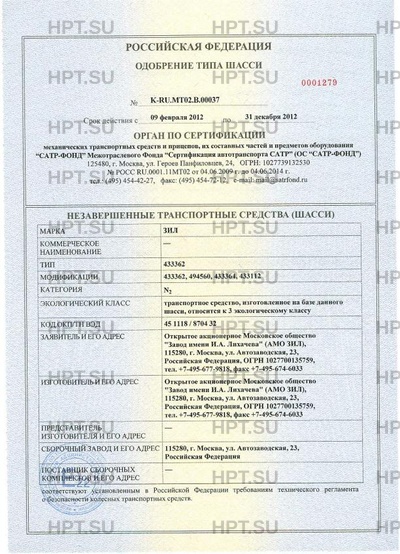 РОССИЙСКАЯ ФЕДЕРАЦИЯ
ОДОБРЕНИЕ ТИПА ШАССИ
0001279
№ K-RU.MT02.B.00037
Срок действия с 09 февраля 2012 по 31 декабря 2012
ОРГАН ПО СЕРТИФИКАЦИИ
механических транспортных средств и прицепов, их составных частей и предметов оборудования
“САТР-ФОНД” Межотраслевого Фонда “Сертификация автотранспорта САТР” (ОС “САТР-ФОНД”)
125480, г. Москва, ул. Героев Панфиловцев, 24, ОГРН: 1027739132530
№ РОСС RU.0001.11МТ02 от 04.06.2009 г. до 04.06.2014 г.
тел.: (495) 454-42-27, факс: (495) 454-72-12, e-mail: mail@satrfond.ru
НЕЗАВЕРШЕННЫЕ ТРАНСПОРТНЫЕ СРЕДСТВА (ШАССИ)
МАРКА ЗИЛ
КОММЕРЧЕСКОЕ НАИМЕНОВАНИЕ —
ТИП 433362
МОДИФИКАЦИИ 433362, 494560, 433364, 433112
КАТЕГОРИЯ N2
ЭКОЛОГИЧЕСКИЙ КЛАСС транспортное средство, изготовленное на базе данного
шасси, относится к 3 экологическому классу
КОД ОКП/ТН ВЭД 45 1118 / 8704 32
ЗАЯВИТЕЛЬ И ЕГО АДРЕС Открытое акционерное Московское общество
"Завод имени И.А. Лихачева" (АМО ЗИЛ),
115280, г. Москва, ул. Автозаводская, 23,
Российская Федерация, ОГРН 1027700135759,
тел. +7-495-677-9818, факс +7-495-674-6033
ИЗГОТОВИТЕЛЬ И ЕГО АДРЕС Открытое акционерное Московское общество
"Завод имени И.А. Лихачева" (АМО ЗИЛ),
115280, г. Москва, ул. Автозаводская, 23,
Российская Федерация, ОГРН 1027700135759,
тел. +7-495-677-9818, факс +7-495-674-6033
ПРЕДСТАВИТЕЛЬ —
ИЗГОТОВИТЕЛЯ И ЕГО АДРЕС
СБОРОЧНЫЙ ЗАВОД И ЕГО АДРЕС 115280, г. Москва, ул. Автозаводская, 23,
Российская Федерация
ПОСТАВЩИК СБОРОЧНЫХ —
КОМПЛЕКТОВ И ЕГО АДРЕС
соответствуют установленным в Российской Федерации требованиям технического регламента
о безопасности колесных транспортных средств.
HPT.SU